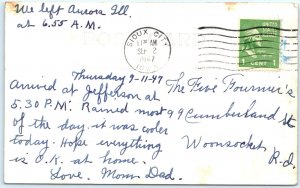 We left Aurora Ill.
at 6.55 A.M.
SIOUX CITY
SEP 2
1947
1 CENT 1
Thursday 9-11-47
Arrived at Jefferson at
5.30 P.M. Rained most
of the day. it was cooler
today. Hope everything
is O.K. at home.
Love. Mom Dad.
The Five Fournier's
99 Cumberland St
Woonsocket,
R.I.